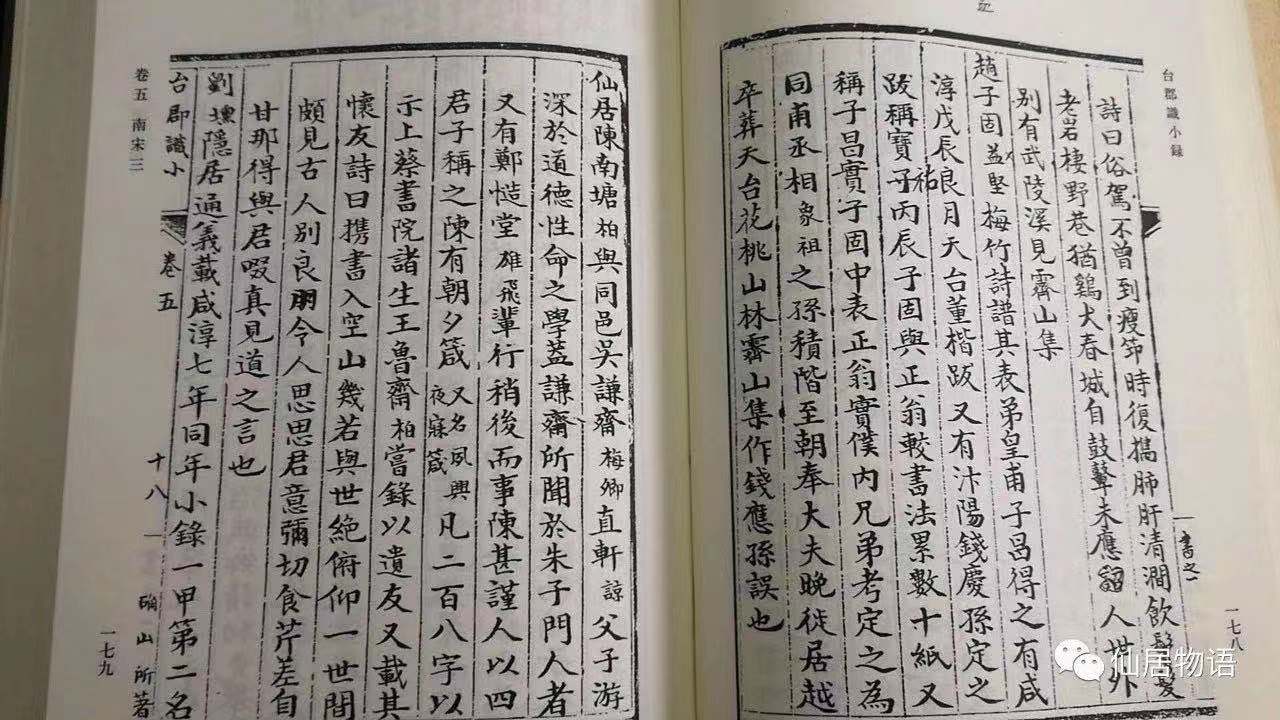 台郡識小錄
一七八
詩曰俗駕不曾到瘦筇時復擕肺肝清澗飲髭髮
老岩棲野巷猶鷄犬春城自鼓鼙未應留人世外
别有武陵溪見霽山集
趙子固孟堅梅竹詩譜其表弟皇甫子昌得之有咸
淳戊辰良月天台董楷跋又有汴陽錢慶孫定之
跋稱寶祐子丙辰子固與正翁較書法累數十紙又
稱子昌實子固中表正翁實僕内兄弟考定之為
同甫丞相象祖之孫積階至朝奉大夫晚徙居越
卒葬天台花桃山林霽山集作錢應孫誤也
仙居陳南塘柏與同邑吳謙齋梅卿直軒諒父子游
深於道德性命之學蓋謙齋所聞於朱子門人者
又有鄭慥堂雄飛輩行稍後而事陳甚謹人以四
君子稱之陳有朝夕箴又名夙興夜寐箴凡二百八字以
示上蔡書院諸生王魯齋柏嘗錄以遺友又載其
懷友詩曰携書入空山幾若與世絶俯仰一世間
頗見古人别良朋今人思思君意彌切食芹差自
甘那得與君啜真見道之言也
劉壎隱居通義載咸淳七年同年小錄一甲第二名
台郡識小
卷五
十八
硝山所著
卷五 南宋三
一七九
仙居物语